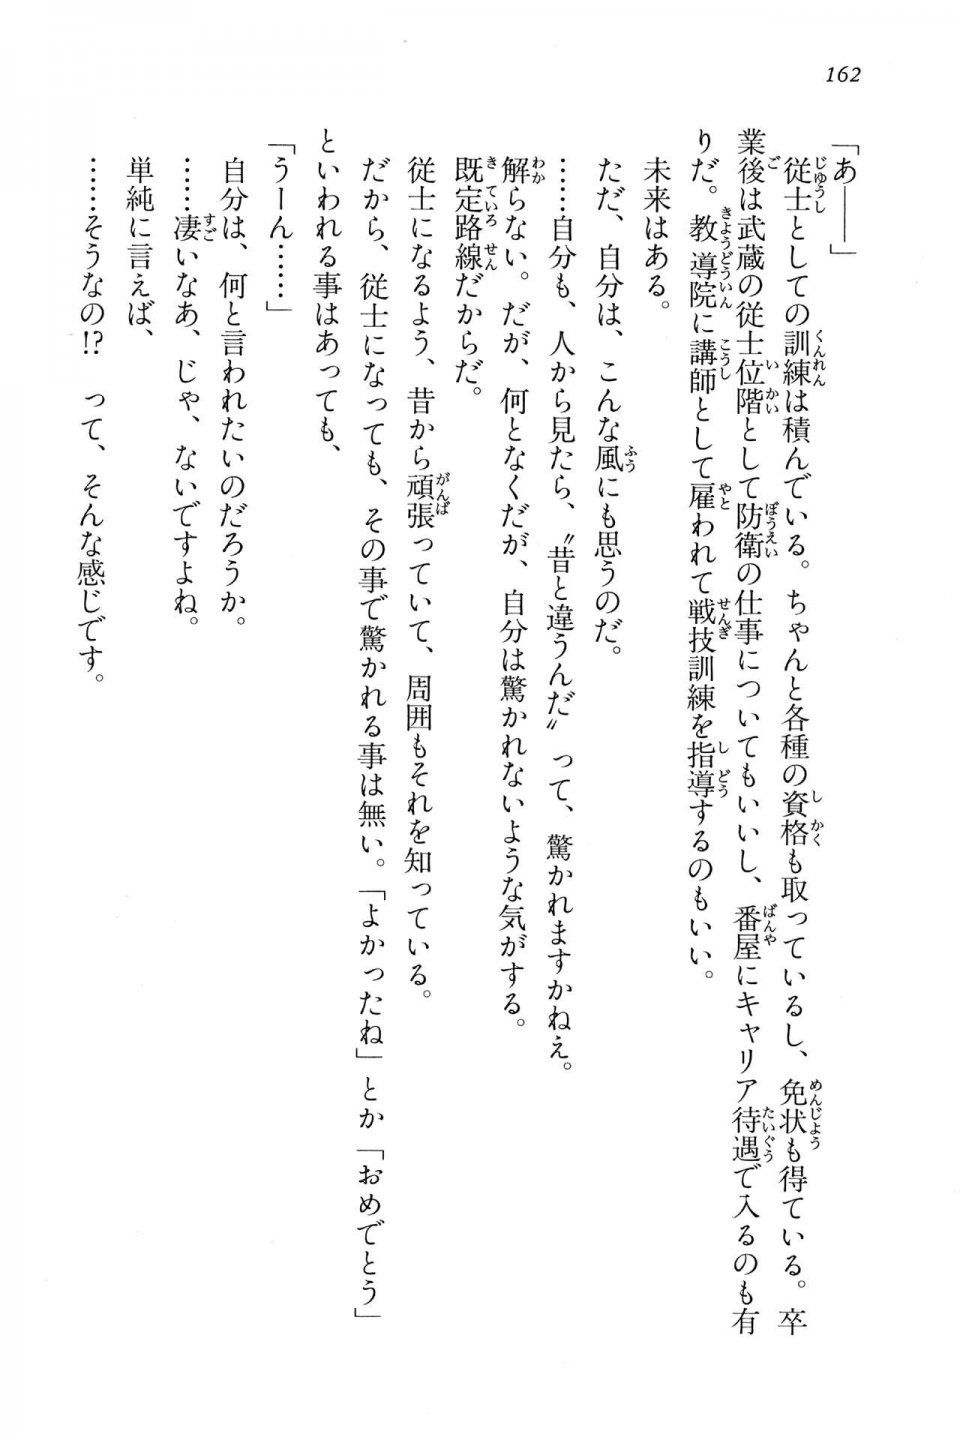 162
「あ――」
従士としての訓練は積んでいる。ちゃんと各種の資格も取っているし、免状も得ている。卒
業後は武蔵の従士位階として防衛の仕事についてもいいし、番屋にキャリア待遇で入るのも有
りだ。教導院に講師として雇われて戦技訓練を指導するのもいい。
未来はある。
ただ、自分は、こんな風にも思うのだ。
……自分も、人から見たら、〝昔と違うんだ〟って、驚かれますかねえ。
解らない。だが、何となくだが、自分は驚かれないような気がする。
既定路線だからだ。
従士になるよう、昔から頑張っていて、周囲もそれを知っている。
だから、従士になっても、その事で驚かれる事は無い。「よかったね」とか「おめでとう」
といわれる事はあっても、
「うーん……」
自分は、何と言われたいのだろうか。
……凄いなあ、じゃ、ないですよね。
単純に言えば、
……そうなの!? って、そんな感じです。